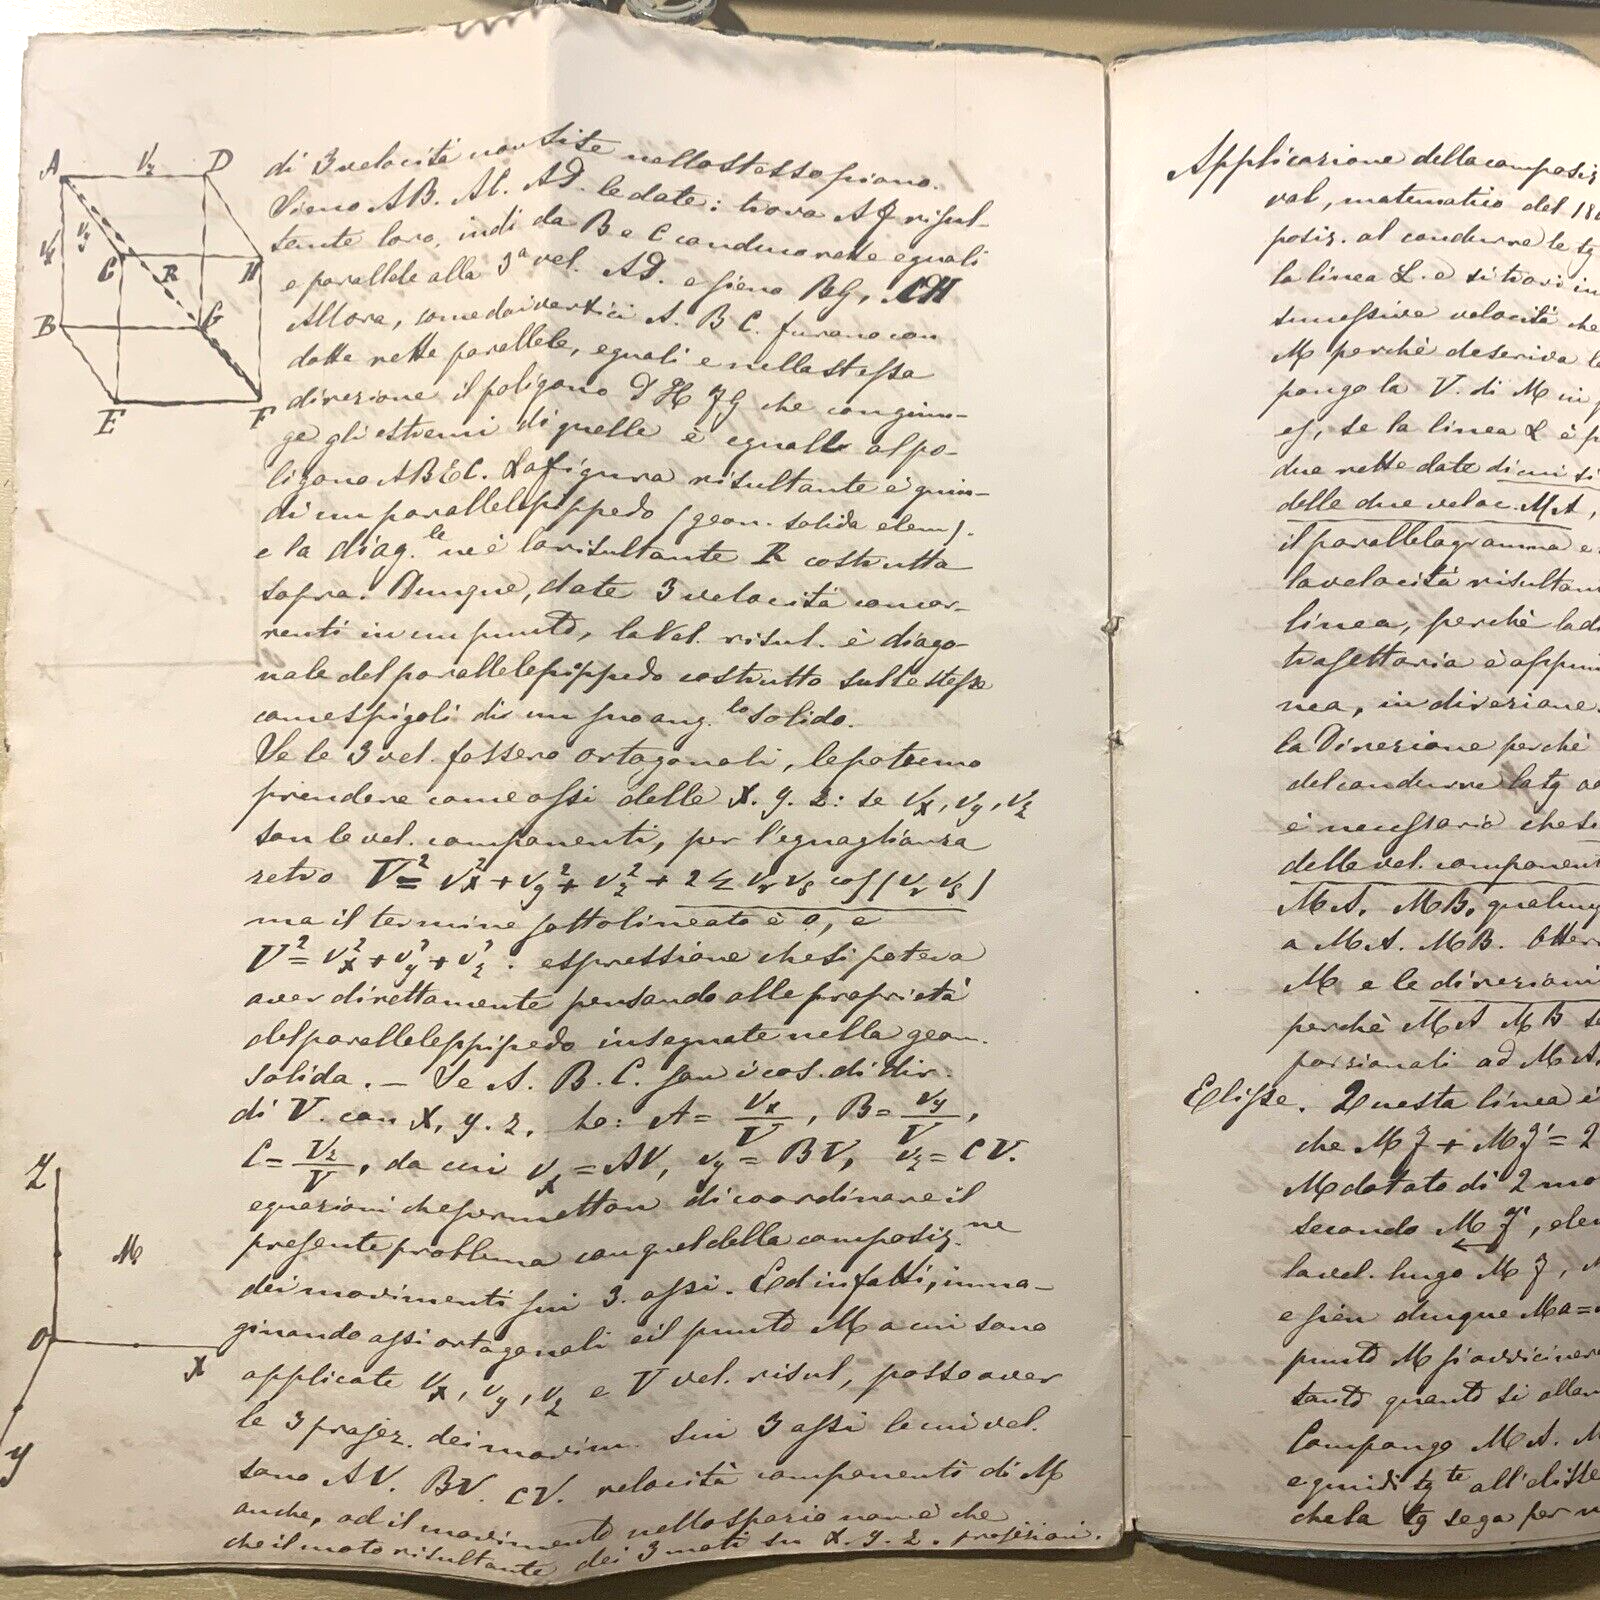 di 3 velocità non site nello stesso piano.
Sieno AB. AC. AD. le date: trova AF risul-
tante loro, indi da B e C conduco rette eguali
e parallele alla 3ª vel. AD. e sieno BG, CH
Allora, come dai vertici A. B C. furono con
dotte rette parallele, eguali e nella stessa
direzione il poligono DHFG che congiun-
ge gli estremi di quelle è eguale al po-
ligono ABEC. La figura risultante è quin-
di un parallelepippedo (geom. solida elem).
e la diag.le ne è la risultante R costrutta
sopra. Dunque, date 3 velocità concor-
renti in un punto, la Vel. risul. è diago-
nale del parallelepippedo costrutto sulle stesse
come spigoli di un suo ang.lo solido.
Se le 3 vel. fossero ortogonali, le potremo
prendere come assi delle X. y. z: se Vx, Vy, Vz
son le vel. componenti, per l'eguaglianza
retro V² = Vx² + Vy² + Vz² + 2 Σ Vr Vs cos (Vr Vs)
ma il termine sottolineato è 0, e
V² = Vx² + Vy² + Vz². espressione che si poteva
aver direttamente pensando alle proprietà
del paralleleppipedo insegnate nella geom.
solida. — Se A. B. C. son i cos. di dir.
di V. con X, y. z. ho: A = Vx/V, B = Vy/V,
C = Vz/V, da cui Vx = AV, Vy = BV, Vz = CV.
equazioni che permetton di coordinare il
presente problema con quel della composiz.ne
dei movimenti sui 3. assi. Ed infatti, imma-
ginando assi ortogonali e il punto M a cui sono
applicate Vx, Vy, Vz e V vel. risul, posso aver
le 3 projez. dei movim. sui 3 assi le cui vel.
sono AV. BV. CV. velocità componenti di M
anche, ad il movimento nello spazio non è che
che il moto risultante dei 3 moti su X. y. z. projezioni.
A Vz D
Vx Vy
C R H
B G
E F
Z
M
O X
y
Applicazione della composiz
val, matematico del
posiz. al condurre le tg
la linea L. e si trovi in
successive velocità che
M perchè descriva l
pongo la V. di M in
es, se la linea L è p
due rette date di cui si
delle due veloc. MA,
il parallelogramma e
la velocità risultan
linea, perchè la d
trajettoria è appun
nea, in direzione.
la Direzione perchè
del condurre la tg
è necessario che s
delle vel. component
MA, MB, qualunq
a MA. MB. Otter
M e le direzioni
perchè MA MB s
porzionali ad MA.
Elisse. Questa linea è
che MF + MF' = 2
M dotato di 2 mo
secondo MF', ele
la vel. lungo MF,
e sien dunque Ma =
punto M si avvicine
tanto quanto si allon
Compongo MA. M
e quindi tg.te all'elisse
che la tg sega per